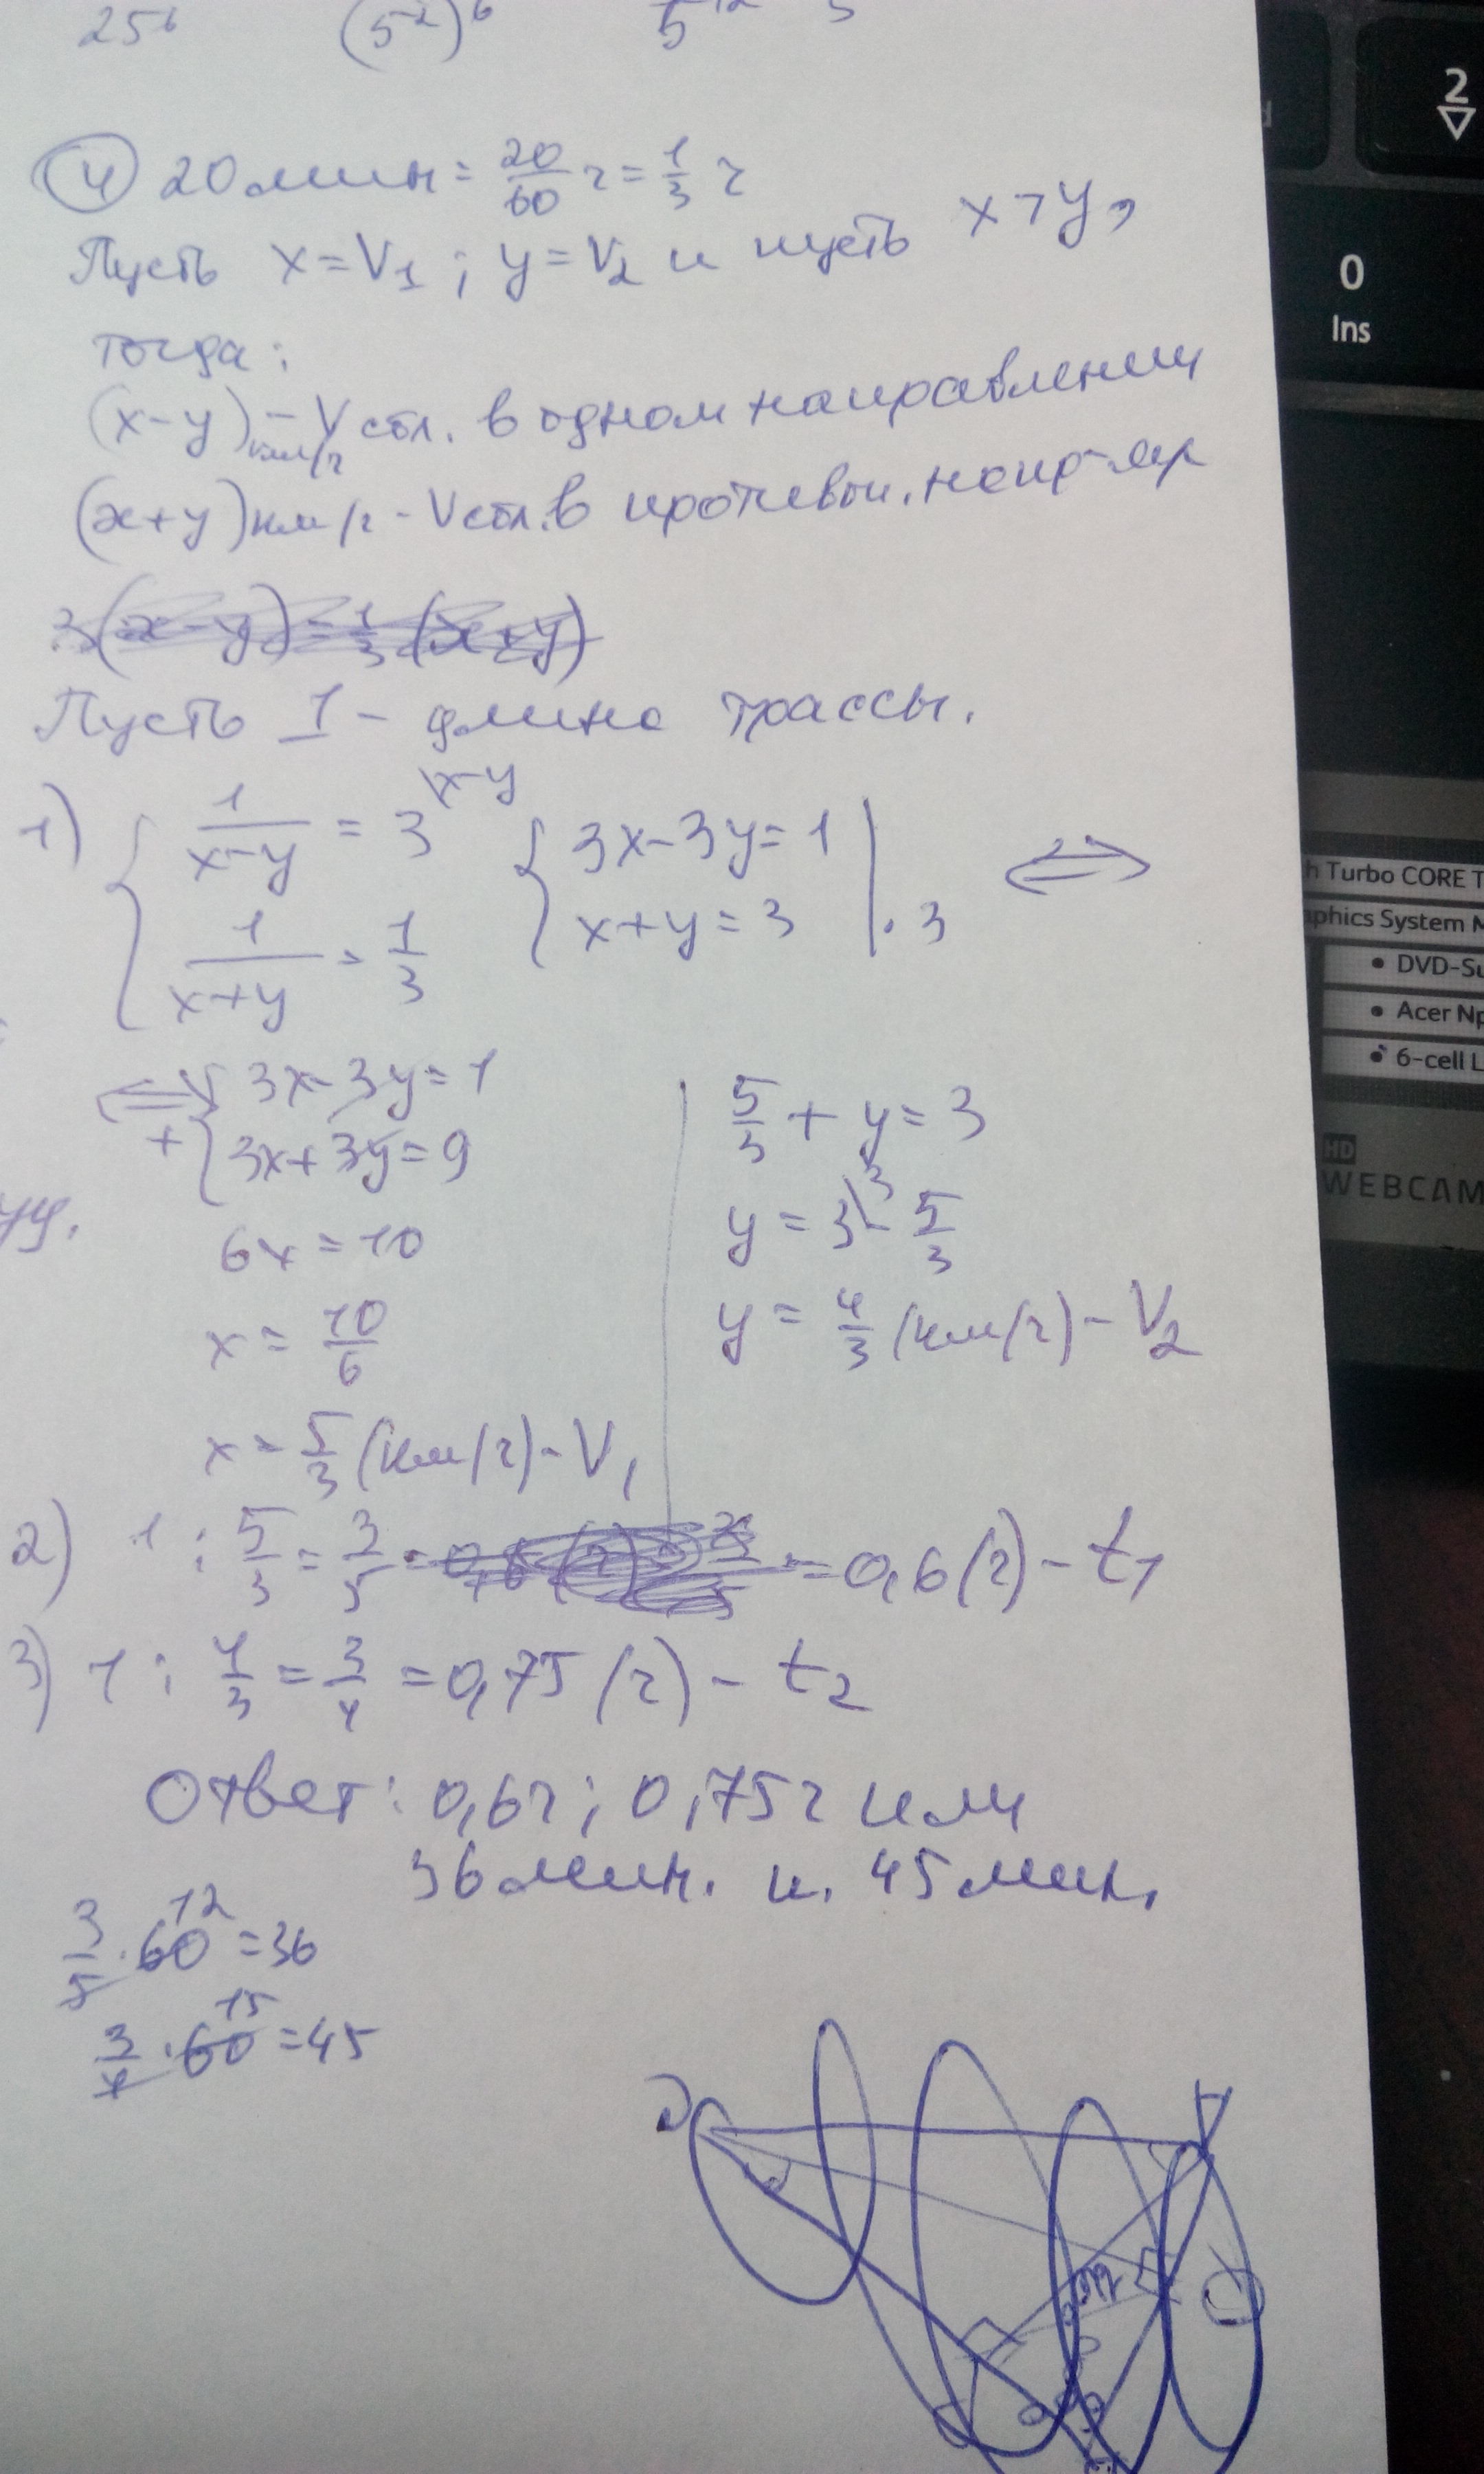 25⁶ (5²)⁶ 5¹²
④ 20 мин = 20/60 г = 1/3 г
Пусть x = V₁ ; y = V₂ и пусть x > y,
тогда:
(x-y) км/г - Vсбл. в одном направлении
(x+y) км/г - Vсбл. в противоп. напр-ях
3(x-y) = 1/3 (x+y)
Пусть 1 - длина трассы.
1) { 1/(x-y) = 3 \x-y { 3x-3y=1 |
1/(x+y) = 1/3 x+y=3 | ·3 ⇔
⇔ { 3x-3y=1
+ 3x+3y=9
6x=10
x = 10/6
x = 5/3 (км/г) - V₁
5/3 + y = 3
y = 3\3 - 5/3
y = 4/3 (км/г) - V₂
2) 1 : 5/3 = 3/5 = 0,6 (г) - t₁
3) 1 : 4/3 = 3/4 = 0,75 (г) - t₂
Ответ: 0,6г ; 0,75г или
36 мин. и. 45 мин.
3/5 · 60 12 = 36
3/4 · 60 15 = 45
2
0
Ins
h Turbo CORE T
aphics System M
• DVD-Su
• Acer Np
• 6-cell L
HD
WEBCAM